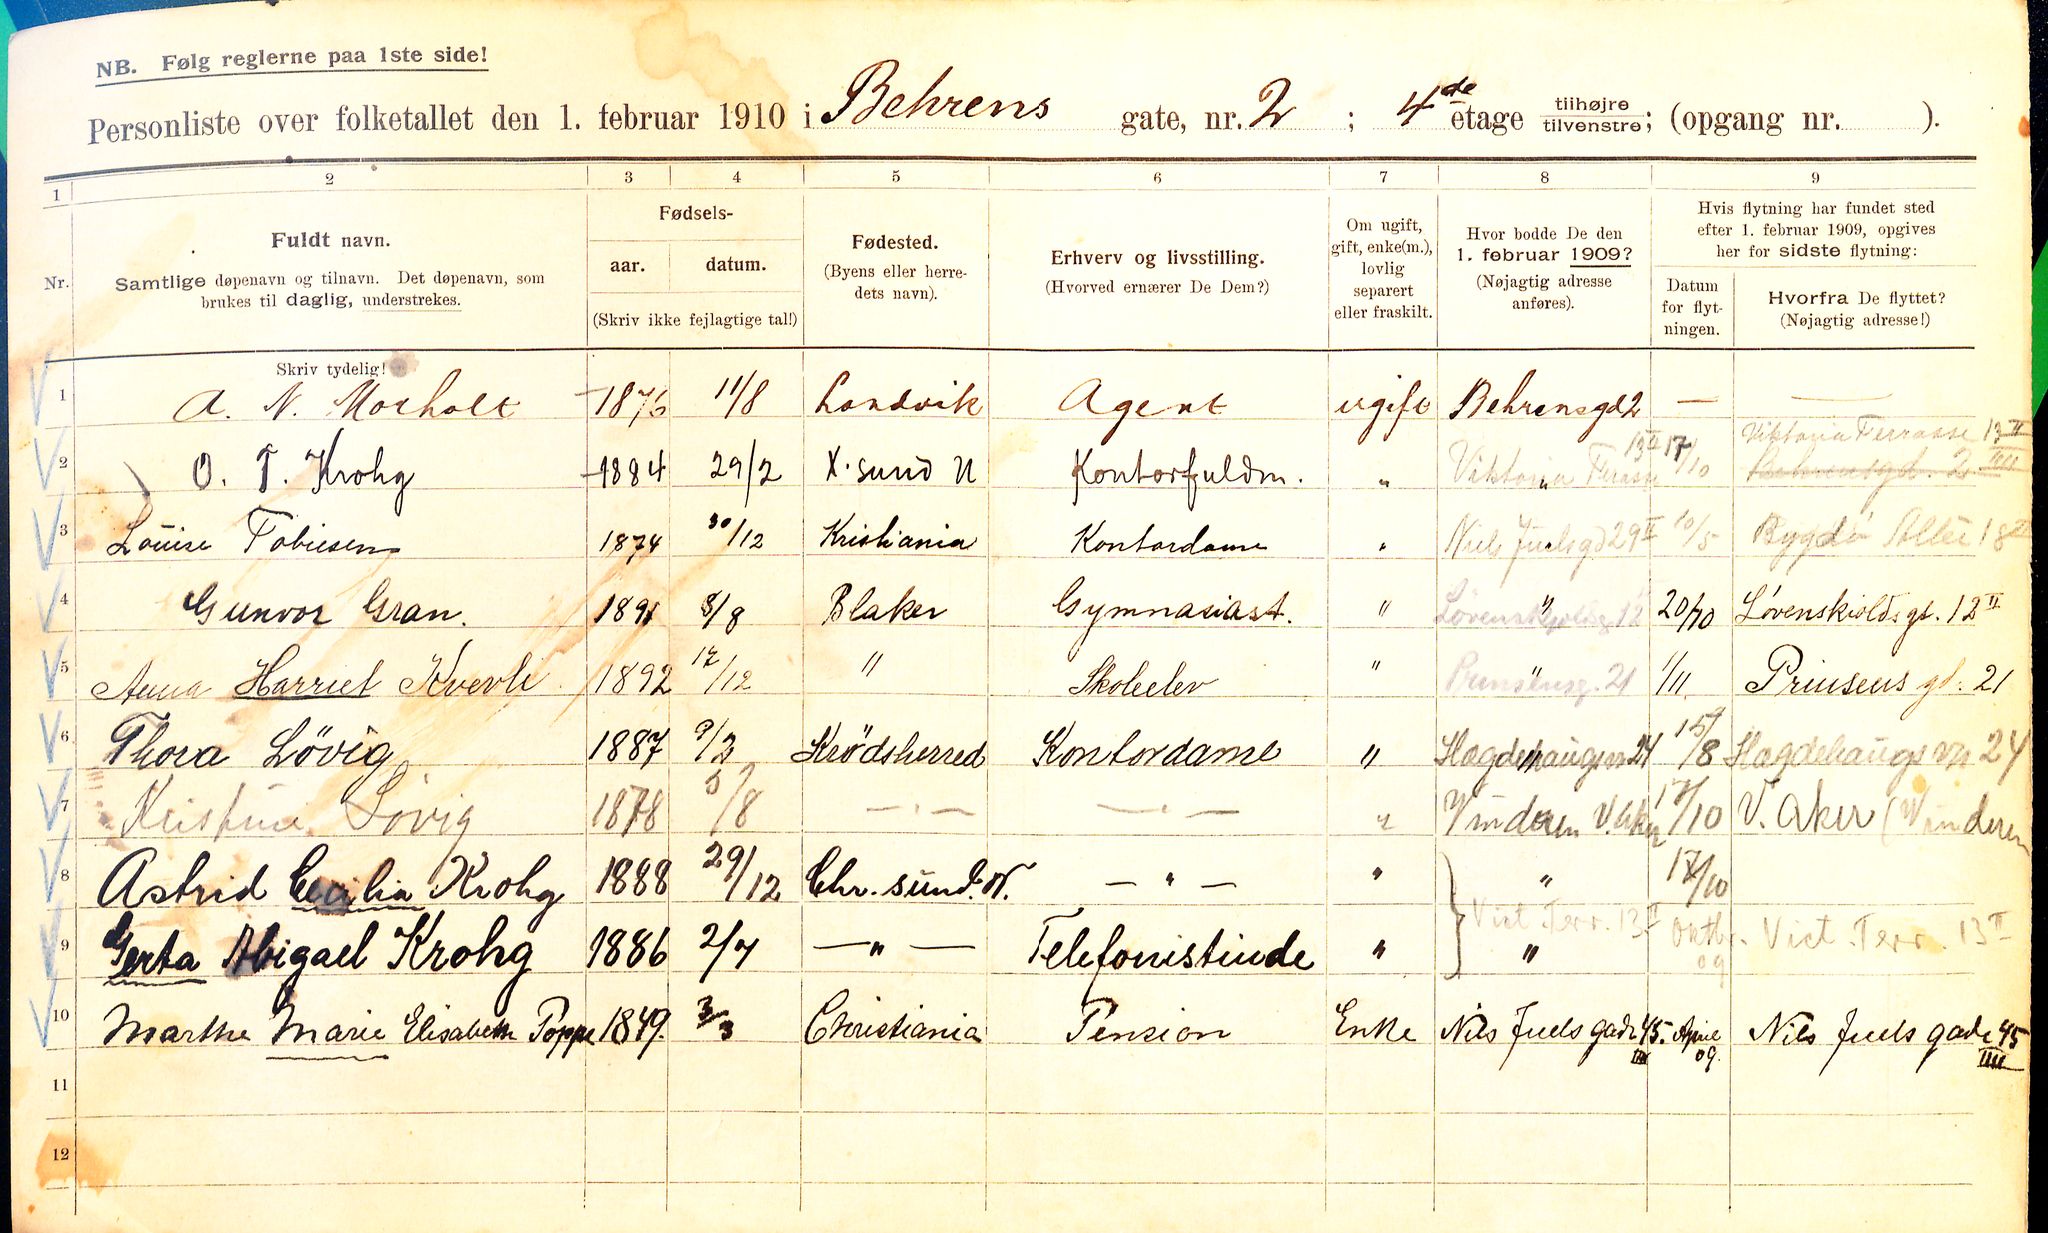 NB. Følg reglerne paa 1ste side!
Personliste over folketallet den 1. februar 1910 i Behrens gate, nr. 2 ; 4de etage tilhøjre/tilvenstre; (opgang nr. ).
1 2 3 4 5 6 7 8 9
Nr. Fuldt navn. Samtlige døpenavn og tilnavn. Det døpenavn, som brukes til daglig, understrekes.
Fødsels- aar. datum. (Skriv ikke fejlagtige tal!)
Fødested. (Byens eller herredets navn).
Erhverv og livsstilling. (Hvorved ernærer De Dem?)
Om ugift, gift, enke(m.), lovlig separert eller fraskilt.
Hvor bodde De den 1. februar 1909? (Nøjagtig adresse anføres).
Hvis flytning har fundet sted efter 1. februar 1909, opgives her for sidste flytning:
Datum for flytningen. Hvorfra De flyttet? (Nøjagtig adresse!)
Skriv tydelig!
1 A. N. Morholt 1876 11/8 Landvik Agent ugift Behrensgd 2 — —
2 O. T. Krohg 1884 29/2 K.sund N Kontorfuldm. " Viktoria Terasse 13 II 17/10 Viktoria Terrasse 13 II Behrensgd. 2 IIII
3 Louise Tobiesen 1874 30/12 Kristiania Kontordame " Niels Juelsgd 29 II 10/5 Bygdö Allé 18
4 Gunvor Gran. 1891 8/8 Blaker Gymnasiast. " " Løvenskioldsg. 12 20/10 Løvenskioldsgt. 12 II
5 Anna Harriet Kverli 1892 17/12 " Skoleelev " " Prinsensg. 21 1/11 Prinsens gd. 21
6 Thora Lövig 1887 9/2 Krödsherred Kontordame " Hægdehaugsvn 24 15/8 Hægdehaugsvn 24
7 Kristine Lövig 1878 5/8 — " — — " — " Vinderen V. Aker 17/10 V. Aker (Vinderen
8 Astrid Cecilia Krohg 1888 29/12 Chr. sund. N. — " — " " 17/10
Vict. Terr. 13 II
9 Gerta Abigael Krohg 1886 2/7 — " — Telefonistinde " " Oktbr. 09 Vict. Terr. 13 II
10 Marthe Marie Elisabeth Poppe 1849. 3/3 Christiania Pension Enke Nils Juels gade 45. IIII April 09. Nils Juels gade 45 IIII
11
12